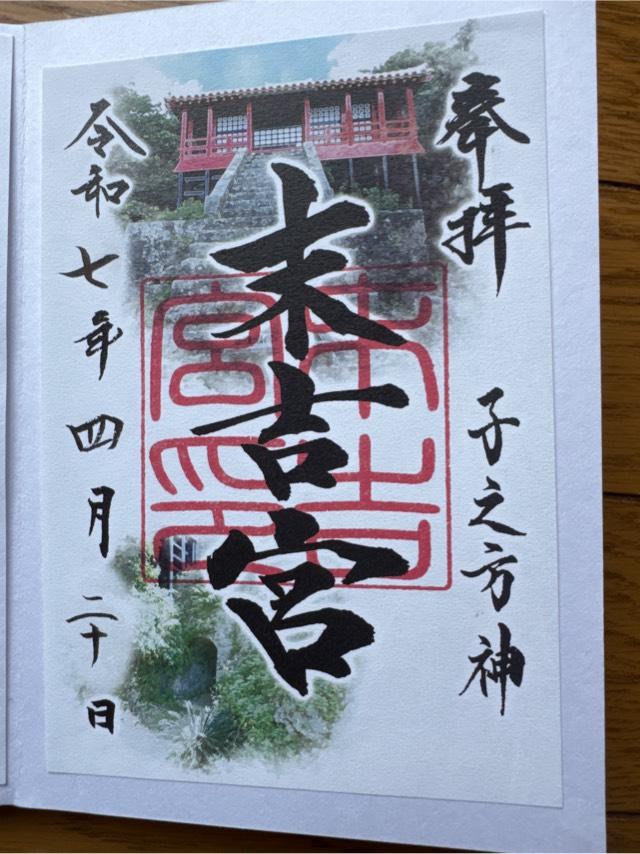 奉拝
子之方神
末吉宮
末吉宮印
令和七年四月二十日